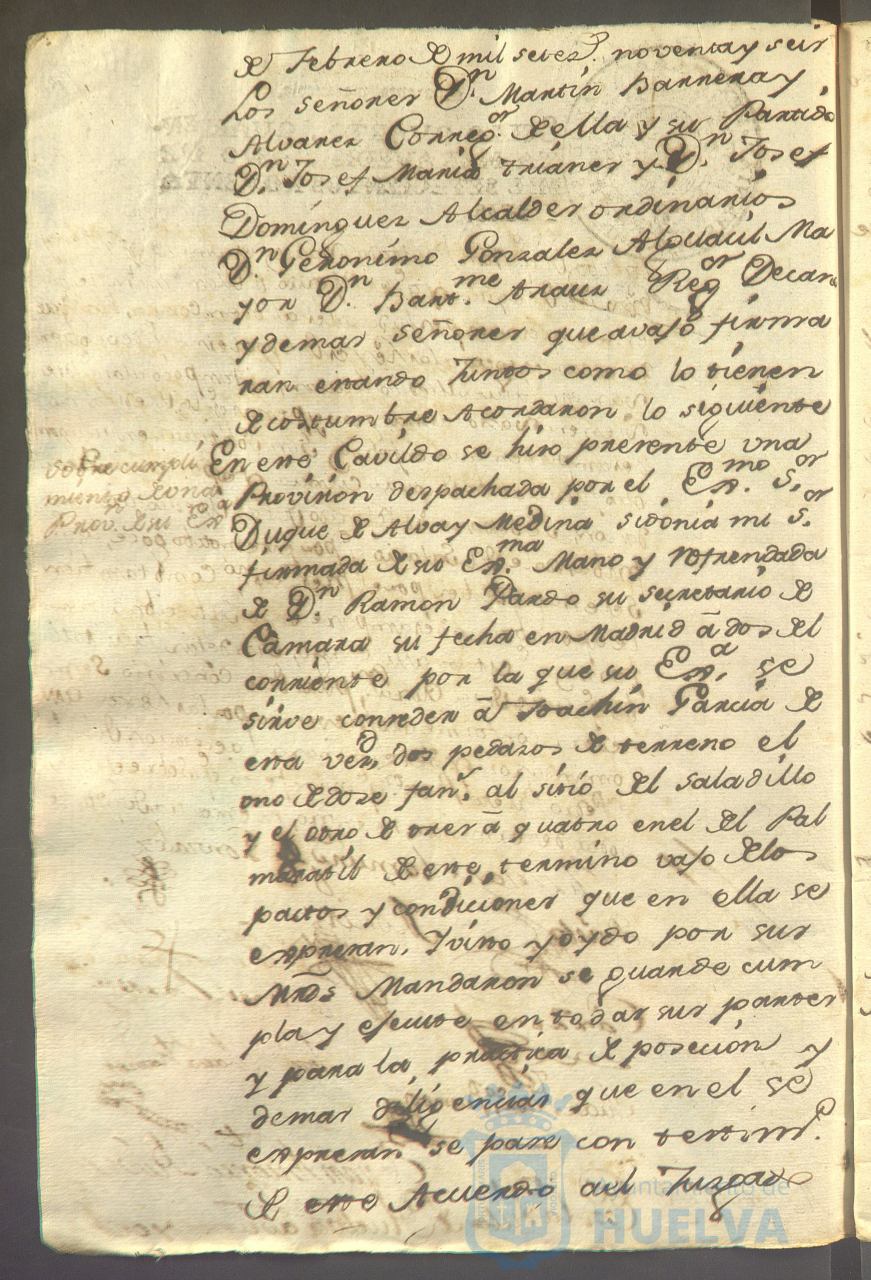 de Febrero de mil setez.s noventa y seis
Los señores Dn. Martin Barrera y
Alvarez Correg.or de ella y su Partido
Dn. Josef Maria trianes y Dn. Josef
Dominguez Alcaldes ordinarios
Dn. Geronimo Gonzalez Alguacil Ma
yor Dn. Bart.me Arauz Reg.or Decano
y demas señores que avajo firma
ran estando Juntos como lo tienen
de costumbre Acordaron lo siguiente
sobre cumpli
miento de una
Prov.n de su Ex.a
En este Cavildo se hizo presente una
Provision despachada por el Ex.mo S.or
Duque de Alva y Medina sidonia mi S.or
firmada de su Ex.ma Mano y refrendada
de Dn. Ramon Pardo su secretario de
Camara su fecha en Madrid á dos del
corriente por la que su Ex.a se
sirve conceder á Joachin Garcia de
esta vez.d dos pedazos de terreno el
uno de doze fan.s al sitio del saladillo
y el otro de tres á quatro en el del Pal
marat il de este termino vajo de los
pactos y condiciones que en ella se
expresan, Y visto y oydo por sus
Mrds Mandaron se guarde cum
pla y efecute en todas sus partes
y para la practica de posecion y
demas diligencias que en el se
expresan se pase con testim.o
de este Acuerdo al Juzgado
Ayuntamiento de
HUELVA